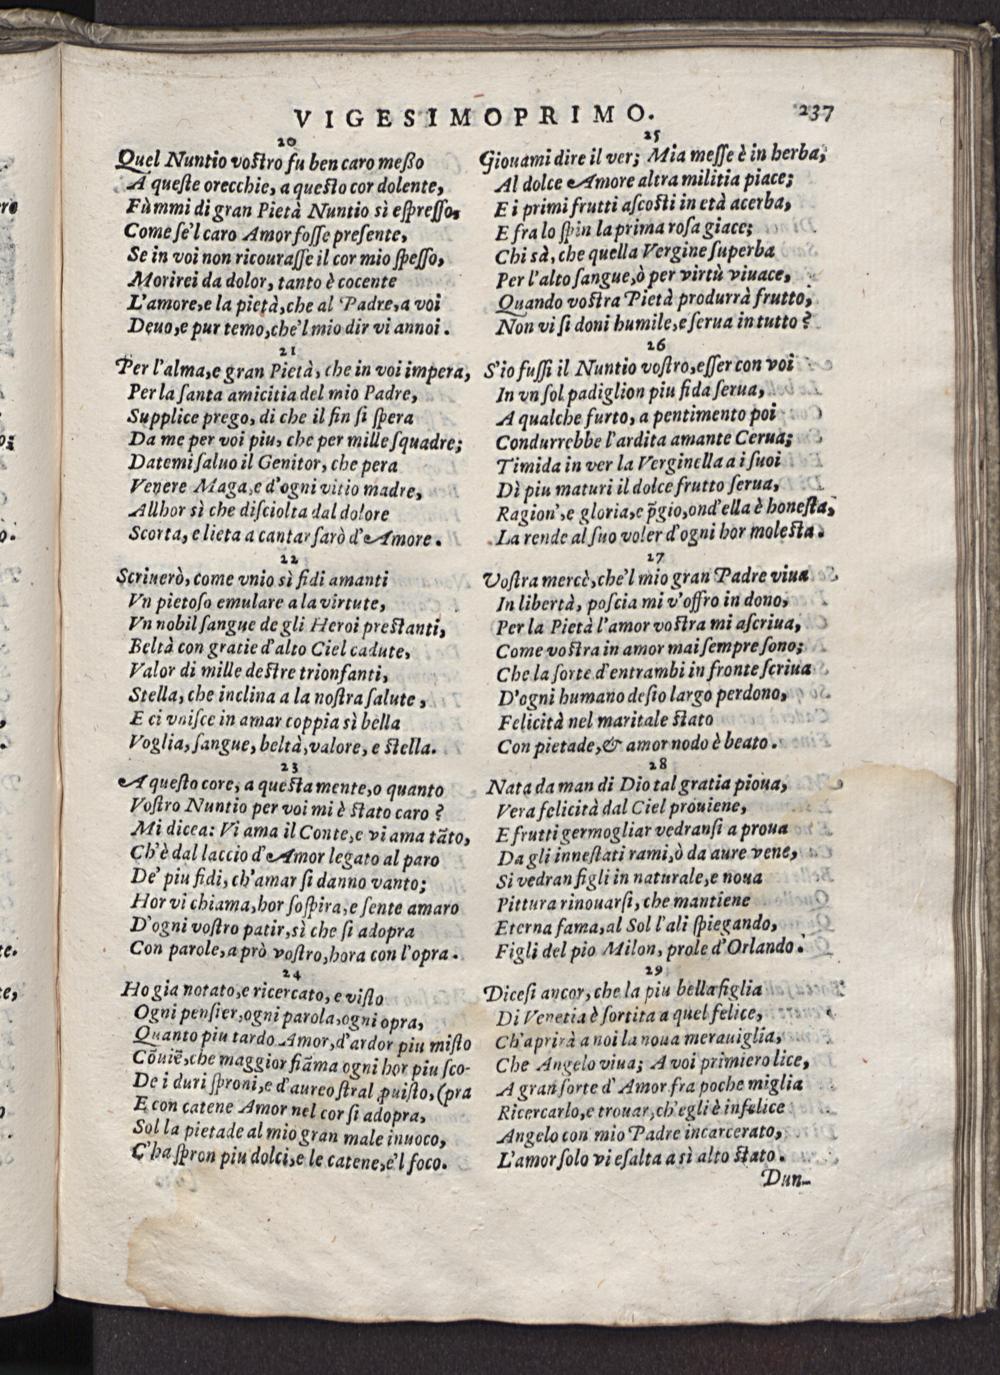 VIGESIMOPRIMO. 237
20
Quel Nuntio vostro fu ben caro meßo
A queste orecchie, a questo cor dolente,
Fùmmi di gran Pietà Nuntio sì espresso,
Come se'l caro Amor fosse presente,
Se in voi non ricourasse il cor mio spesso,
Morirei da dolor, tanto è cocente
L'amore, e la pietà, che al Padre, a voi
Deuo, e pur temo, che'l mio dir vi annoi.
21
Per l'alma, e gran Pietà, che in voi impera,
Per la santa amicitia del mio Padre,
Supplice prego, di che il fin si spera
Da me per voi piu, che per mille squadre;
Datemi saluo il Genitor, che pera
Venere Maga, e d'ogni vitio madre,
Allhor sì che disciolta dal dolore
Scorta, e lieta a cantar sarò d'Amore.
22
Scriuerò, come vnio sì fidi amanti
Vn pietoso emulare a la virtute,
Vn nobil sangue de gli Heroi prestanti,
Beltà con gratie d'alto Ciel cadute,
Valor di mille destre trionfanti,
Stella, che inclina a la nostra salute,
E ci vnisce in amar coppia sì bella
Voglia, sangue, beltà, valore, e stella.
23
A questo core, a questa mente, o quanto
Vostro Nuntio per voi mi è stato caro?
Mi dicea: Vi ama il Conte, e vi ama tãto,
Ch'è dal laccio d'Amor legato al paro
De' piu fidi, ch'amar si danno vanto;
Hor vi chiama, hor sospira, e sente amaro
D'ogni vostro patir, sì che si adopra
Con parole, a prò vostro, hora con l'opra.
24
Ho gia notato, e ricercato, e visto
Ogni pensier, ogni parola, ogni opra,
Quanto piu tardo Amor, d'ardor piu misto
Cõuiẽ, che maggior fiãma ogni hor piu sco-
De i duri sproni, e d'aureo stral ꝓuisto, (pra
E con catene Amor nel cor si adopra,
Sol la pietade al mio gran male inuoco,
C'ha spron piu dolci, e le catene, e'l foco.
25
Giouami dire il ver; Mia messe è in herba;
Al dolce Amore altra militia piace;
E i primi frutti ascosti in età acerba,
E fra lo spin la prima rosa giace;
Chi sà, che quella Vergine superba
Per l'alto sangue, ò per virtù viuace,
Quando vostra Pietà produrrà frutto,
Non vi si doni humile, e serua in tutto?
26
S'io fussi il Nuntio vostro, esser con voi
In vn sol padiglion piu fida serua,
A qualche furto, a pentimento poi
Condurrebbe l'ardita amante Cerua;
Timida in ver la Verginella a i suoi
Dì piu maturi il dolce frutto serua,
Ragion', e gloria, e p̃gio, ond'ella è honesta,
La rende al suo voler d'ogni hor molesta.
27
Vostra mercè, che'l mio gran Padre viua
In libertà, poscia mi v'offro in dono,
Per la Pietà l'amor vostra mi ascriua,
Come vostra in amor mai sempre sono;
Che la sorte d'entrambi in fronte scriua
D'ogni humano desio largo perdono,
Felicità nel maritale stato
Con pietade, & amor nodo è beato.
28
Nata da man di Dio tal gratia pioua,
Vera felicità dal Ciel prouiene,
E frutti germogliar vedransi a proua
Da gli innestati rami, ò da aure vene,
Si vedran figli in naturale, e noua
Pittura rinouarsi, che mantiene
Eterna fama, al Sol l'ali spiegando,
Figli del pio Milon, prole d'Orlando.
29
Dicesi ancor, che la piu bella figlia
Di Venetia è sortita a quel felice,
Ch'aprirà a noi la noua merauiglia,
Che Angelo viua; A voi primiero lice,
A gran sorte d'Amor fra poche miglia
Ricercarlo, e trouar, ch'egli è infelice
Angelo con mio Padre incarcerato,
L'amor solo vi esalta a sì alto stato.
Dun-